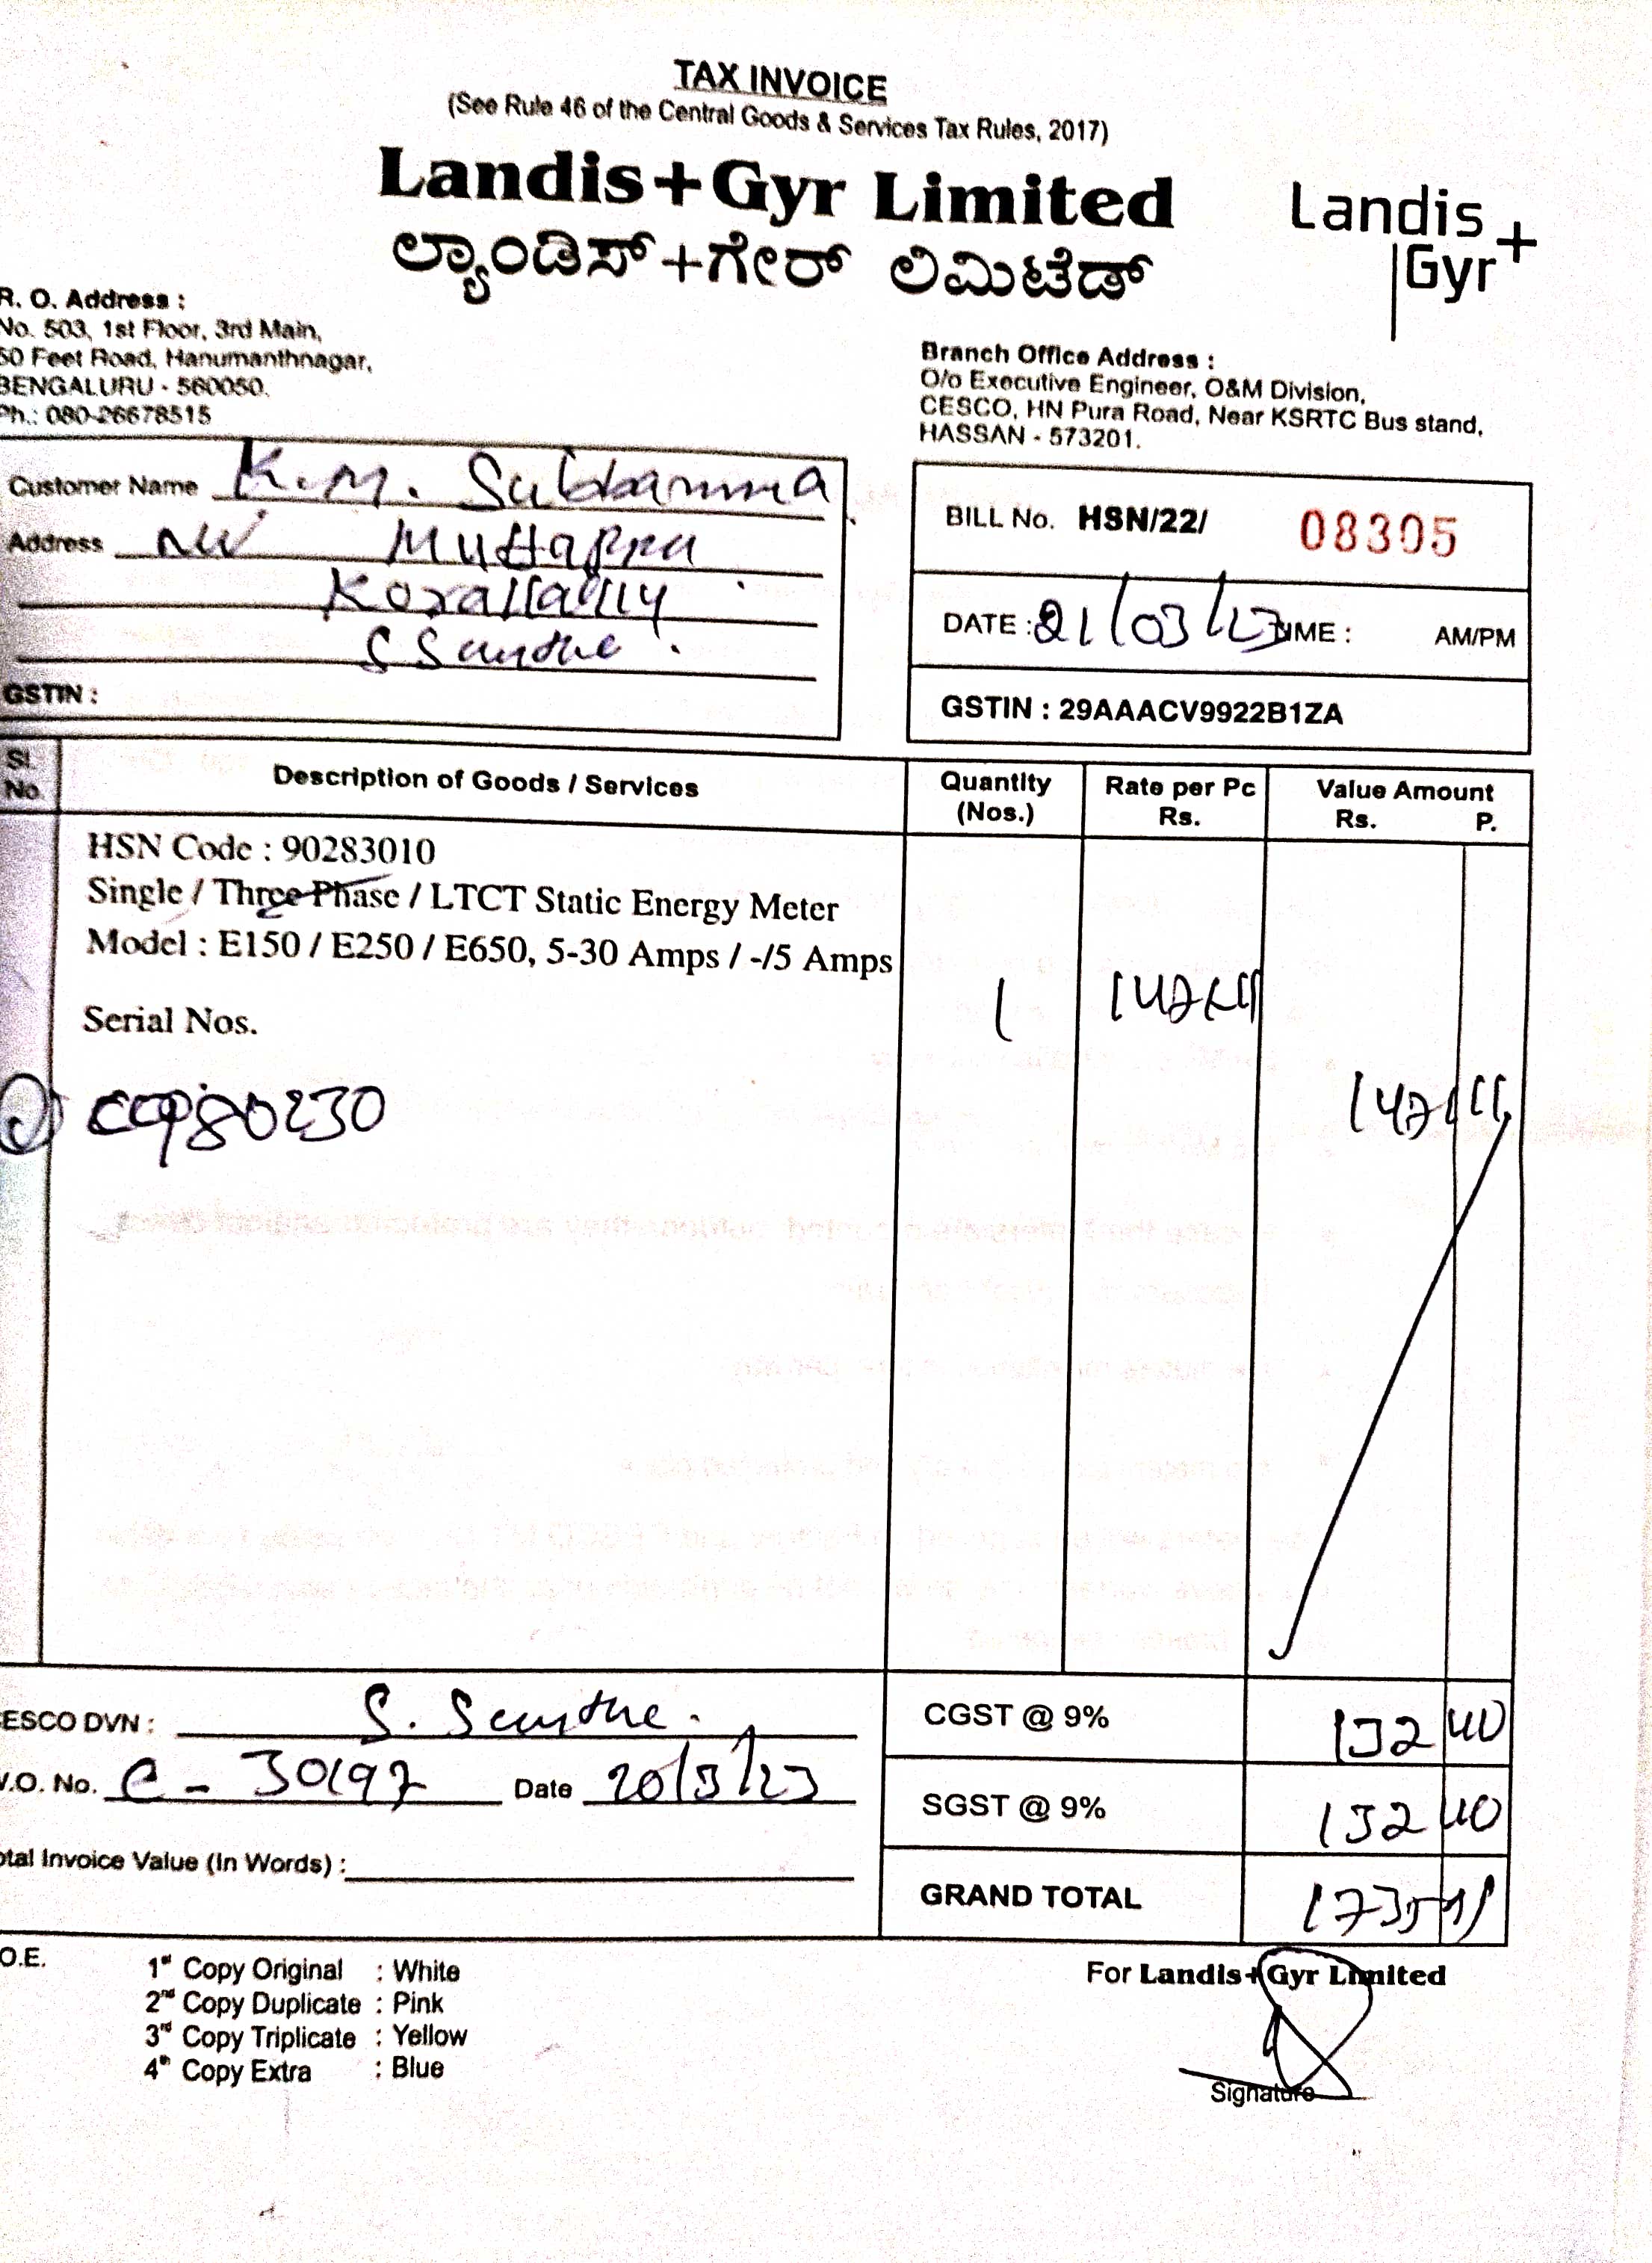 TAX INVOICE
(See Rule 46 of the Central Goods & Services Tax Rules, 2017)
Landis+Gyr Limited
ಲ್ಯಾಂಡಿಸ್+ಗೇರ್ ಲಿಮಿಟೆಡ್
Landis
Gyr+
R. O. Address :
No. 503, 1st Floor, 3rd Main,
50 Feet Road, Hanumanthnagar,
BENGALURU - 560050.
Ph.: 080-26678515
Branch Office Address :
O/o Executive Engineer, O&M Division,
CESCO, HN Pura Road, Near KSRTC Bus stand,
HASSAN - 573201.
Customer Name K.M. Subbamma
Address Muttappa
GSTIN :
BILL No. HSN/22/ 08305
DATE : 21/03/23 TIME : AM/PM
GSTIN : 29AAACV9922B1ZA
Sl. No. Description of Goods / Services Quantity (Nos.) Rate per Pc Rs. Value Amount Rs. P.
HSN Code : 90283010
Single / Three Phase / LTCT Static Energy Meter
Model : E150 / E250 / E650, 5-30 Amps / -/5 Amps
1
Serial Nos.
ESCO DVN :
CGST @ 9% 132 40
.O. No. C - 30197 Date 20/3/23
SGST @ 9% 132 40
otal Invoice Value (In Words) :
GRAND TOTAL
O.E.
1st Copy Original : White
2nd Copy Duplicate : Pink
3rd Copy Triplicate : Yellow
4th Copy Extra : Blue
For Landis+Gyr Limited
Signature